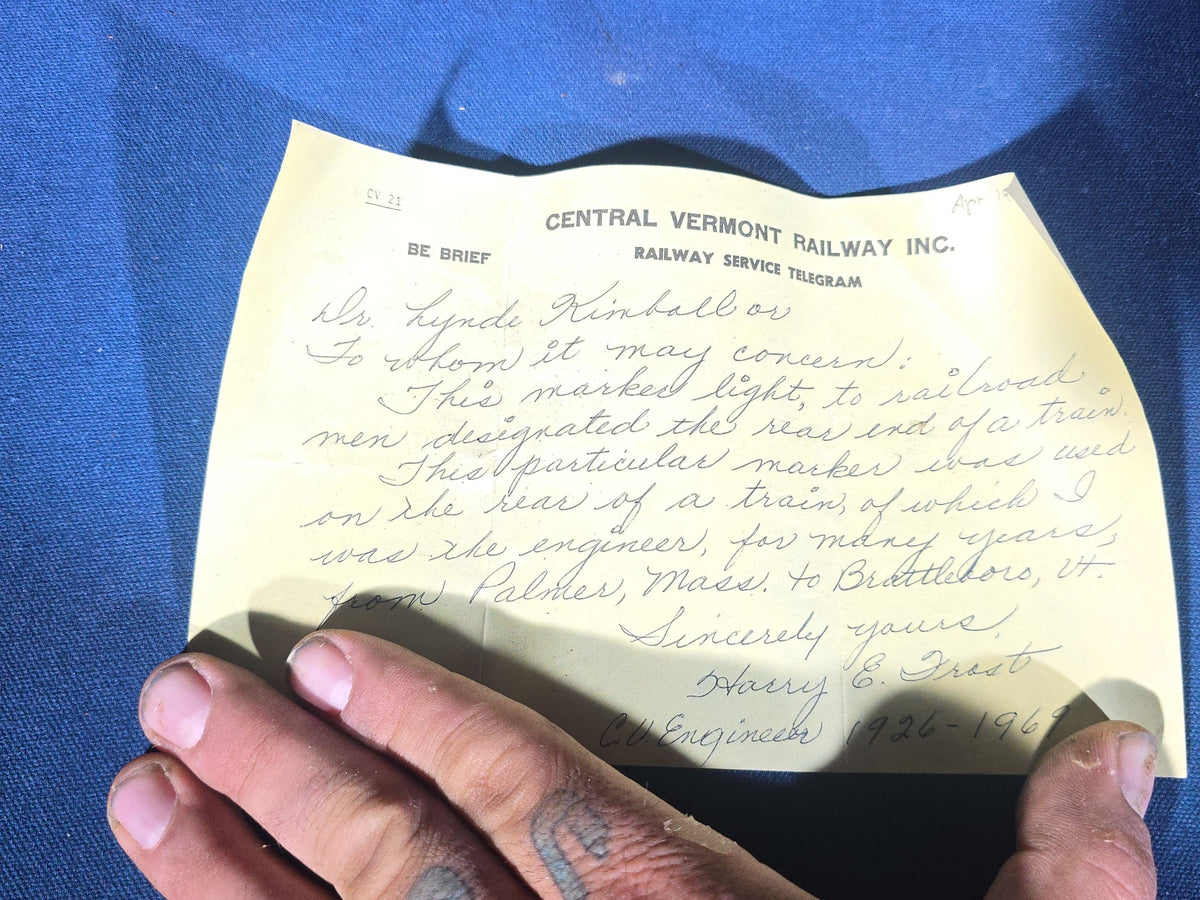 CV 21
Apr 19
CENTRAL VERMONT RAILWAY INC.
BE BRIEF
RAILWAY SERVICE TELEGRAM
Dr. Lynde Kimball or
To whom it may concern:
This marker light, to railroad
men designated the rear end of a train.
This particular marker was used
on the rear of a train, of which I
was the engineer, for many years,
from Palmer, Mass. to Brattleboro, Vt.
Sincerely yours,
Harry E. Frost
C.V. Engineer 1926-1969